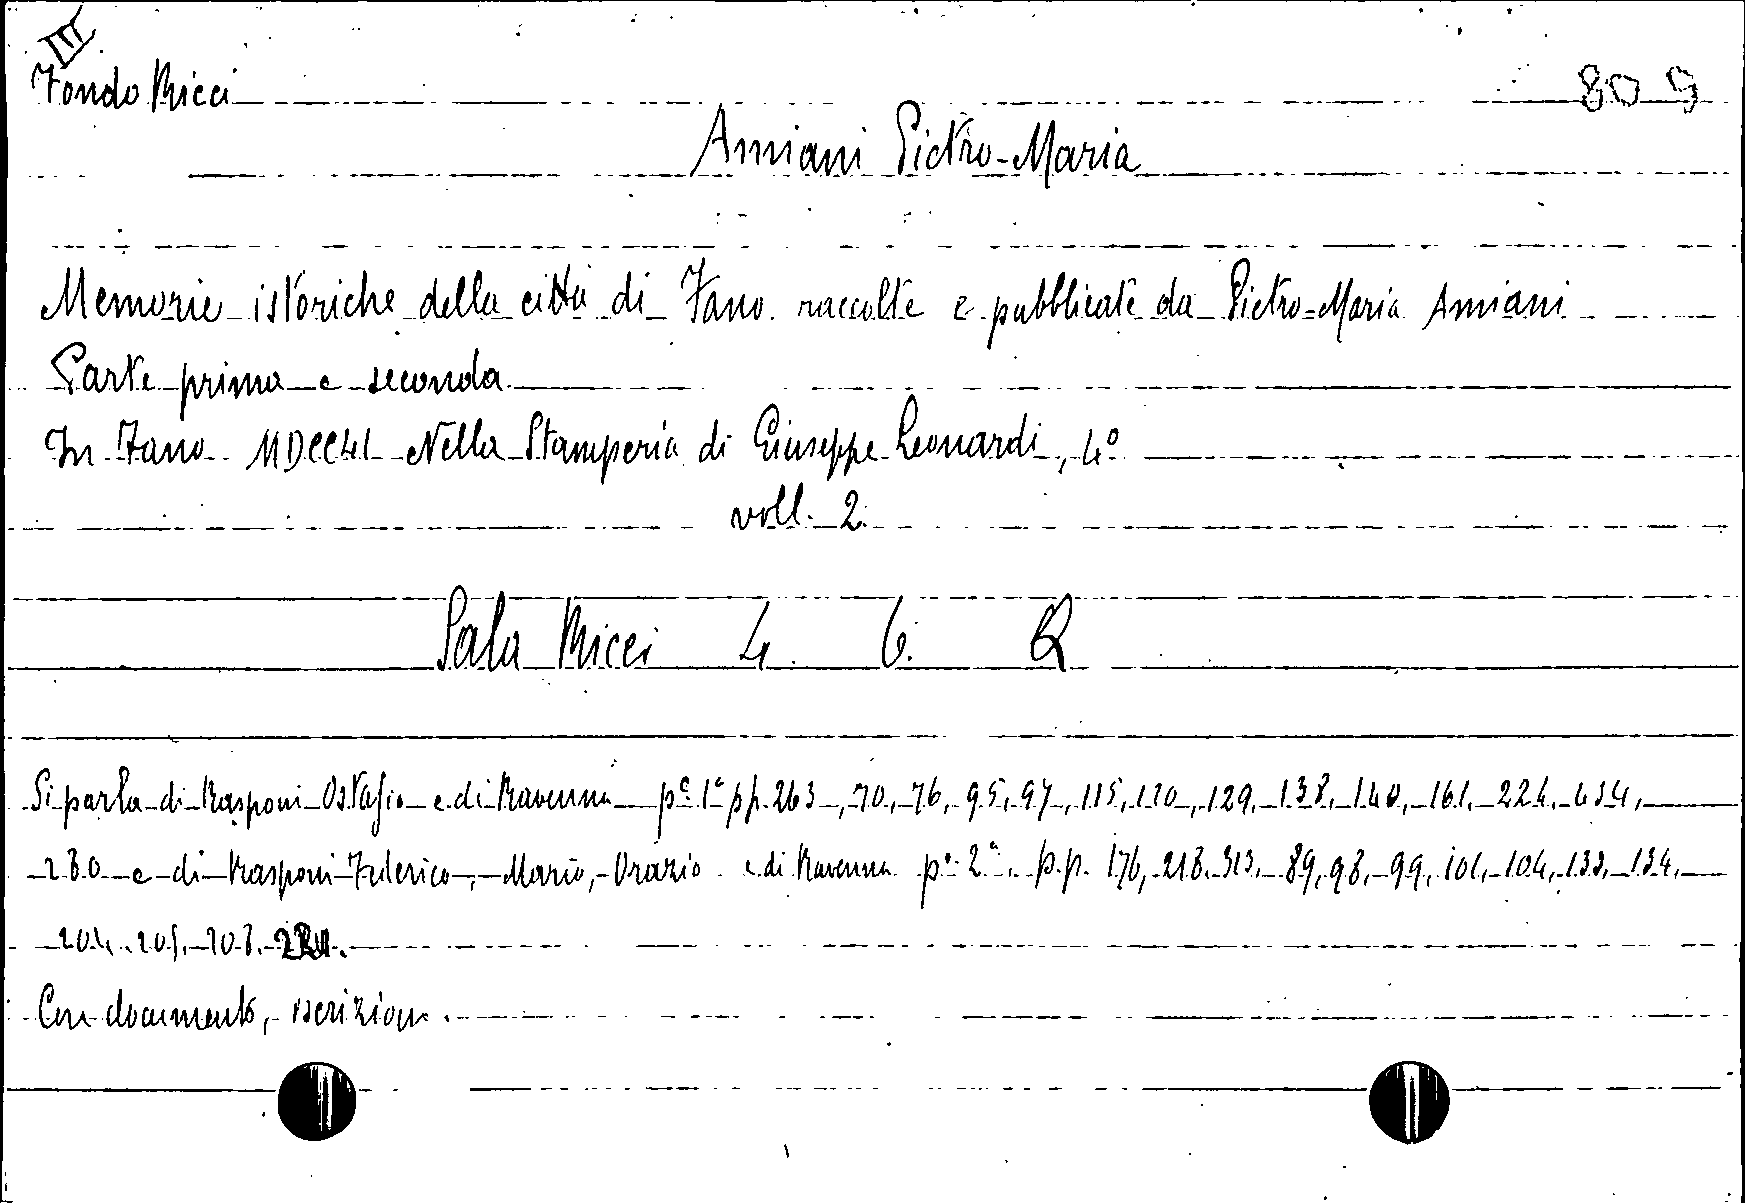 III
Fondo Ricci 809
Amiani Pietro-Maria
Memorie istoriche della città di Fano raccolte e pubblicate da Pietro-Maria Amiani
Parte prima e seconda
In Fano MDCCLI Nella Stamperia di Giuseppe Leonardi, 4°
voll. 2.
Sala Ricci 4. 6. Q
Si parla di Rasponi Ostasio e di Ravenna pe 1a pp. 263, 70, 76, 95, 97, 115, 120, 129, 138, 140, 161, 224, 434,
280 e di Rasponi Federico, Mario, Orazio e di Ravenna pe 2a. p.p. 176, 218, 313, 89, 98, 99, 101, 104, 133, 134,
204. 205, 208,
Con documento, iscrizioni.